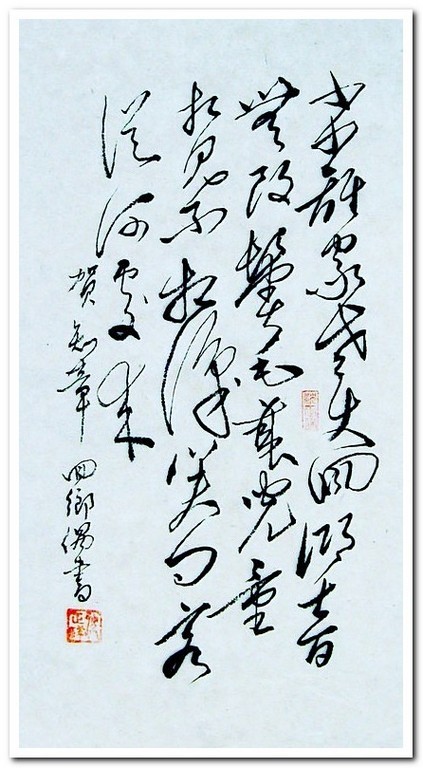 少小離家老大回鄉音
無改鬢毛衰兒童
相見不相識笑問客
從何處來
賀知章回鄉偶書